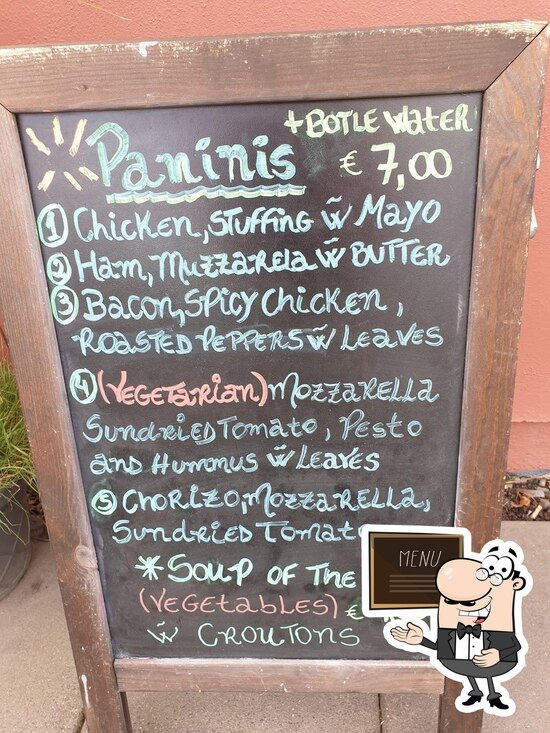 +BOTLE WateR
Paninis € 7,00
1 Chicken, Stuffing w̃ Mayo
2 Ham, Muzzarela w̃ BUTTER
3 Bacon, Spicy Chicken,
ROASTED PEPPERS w̃ Leaves
4 (Vegetarian) Mozzarella
SundRied Tomato, Pesto
and Hummus w̃ Leaves
5 Chorizo, Mozzarella,
SundRied Tomat
*Soup of The
(Vegetables) €
w̃ CROUTONS
MENU